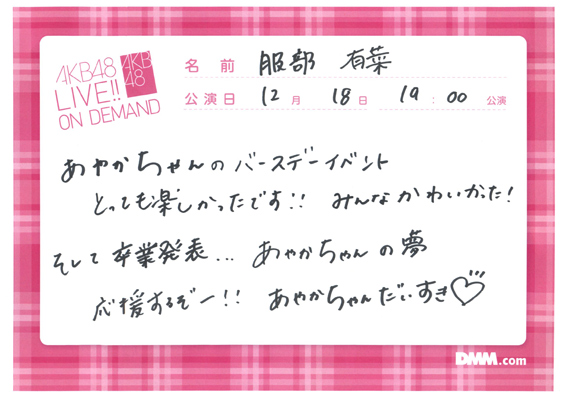 AKB48
LIVE!!
ON DEMAND
AKB
48
名前 服部 有菜
公演日 12月 18日 19:00 公演
あやかちゃんのバースデーイベント
とっても楽しかったです!! みんなかわいかった!
そして卒業発表... あやかちゃんの夢
応援するぞー!! あやかちゃんだいすき♡
DMM.com